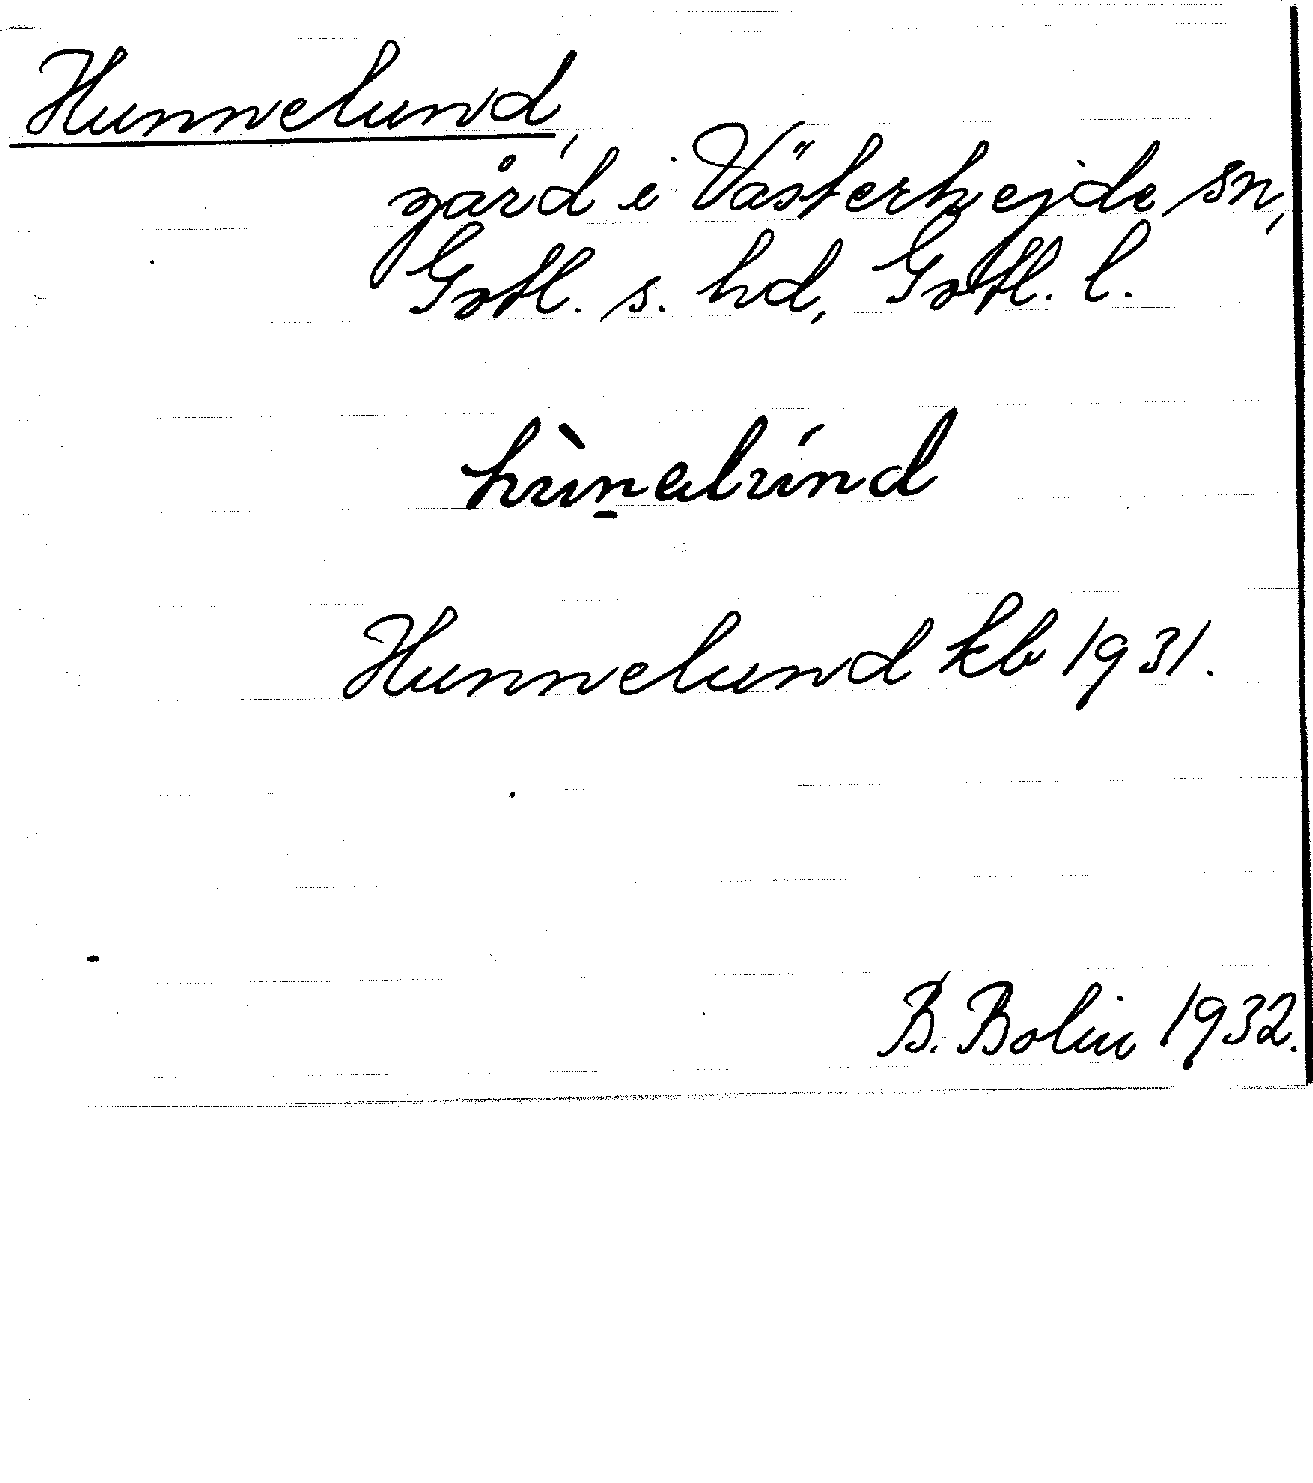 Hunnelund,
gård i Västerhejde sn,
Gotl. s. hd, Gotl. l.
hùn̲alúnd
Hunnelund kb 1931.
B. Bolin 1932.